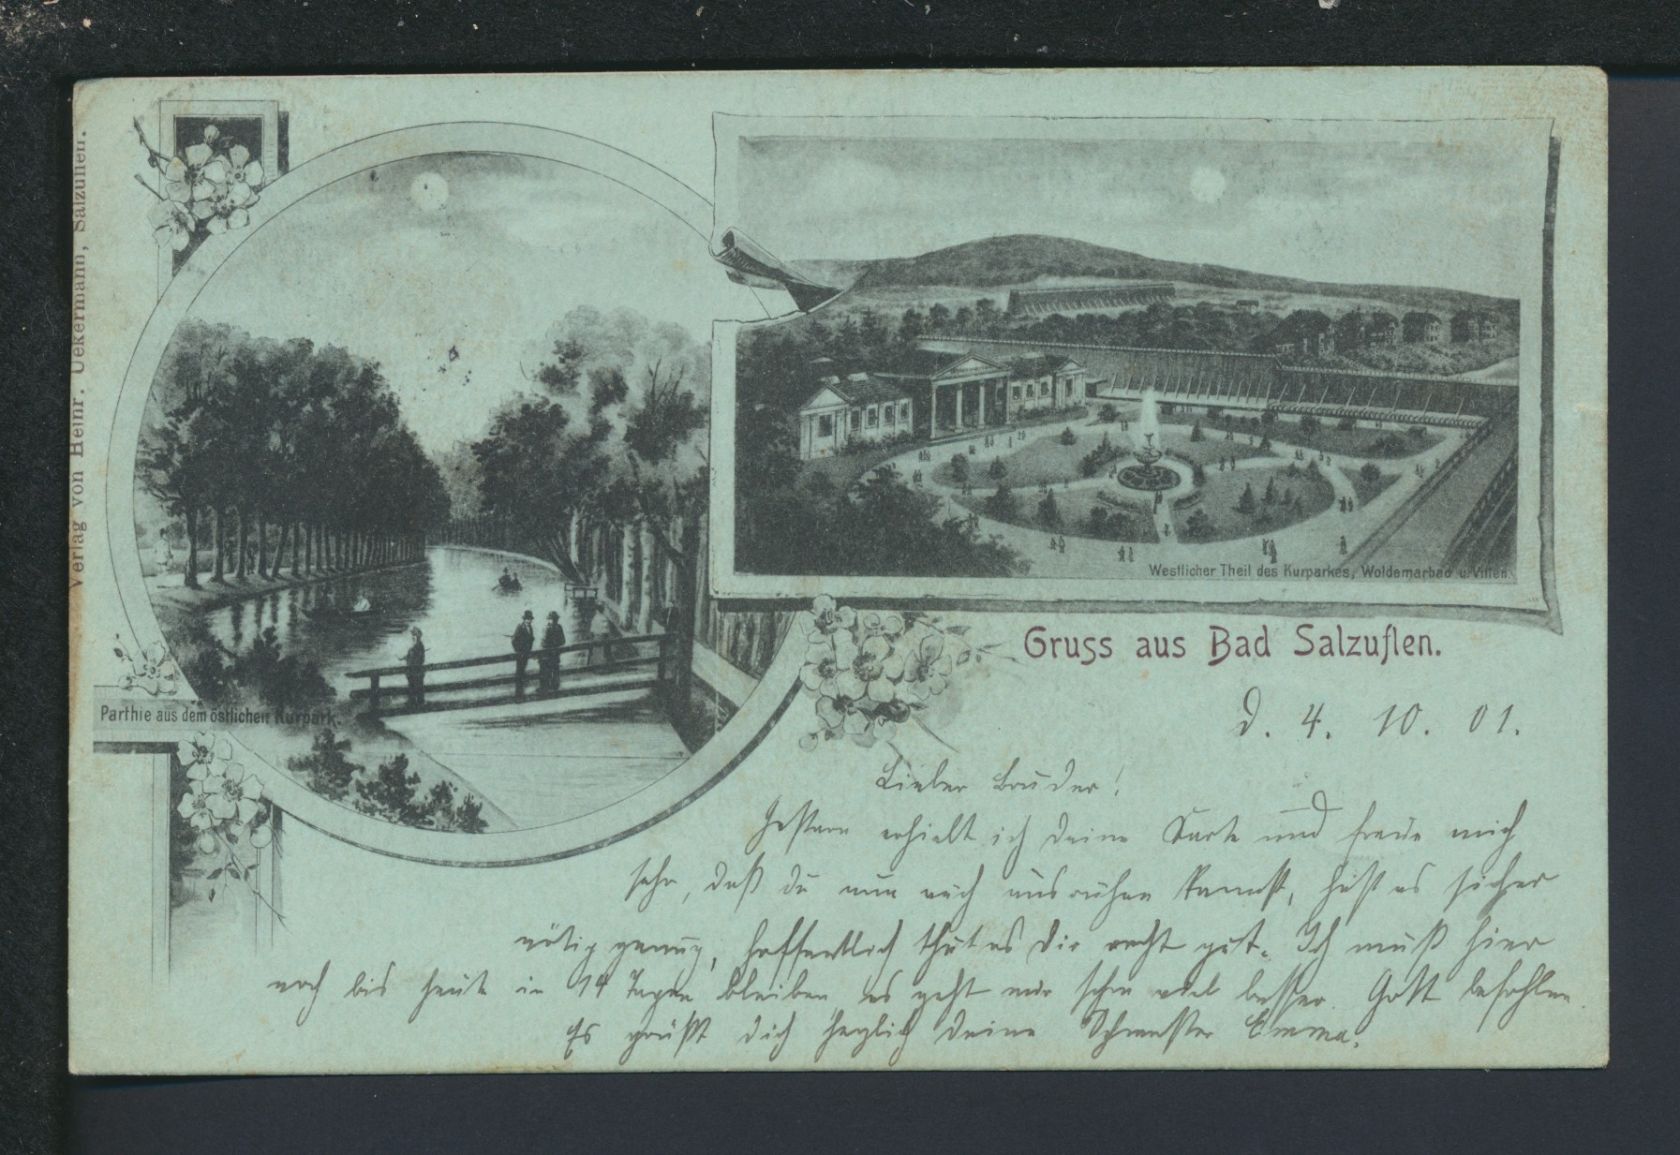 Verlag von Heinr. Uekermann, Salzuflen.
Westlicher Theil des Kurparkes, Woldemarbad u. Villen.
Parthie aus dem östlichen Kurpark.
Gruss aus Bad Salzuflen.
D. 4. 10. 01.
Lieber Bruder!
Gestern erhielt ich deine Karte und freue mich
sehr, daß du nun auch ausruhen kannst, hast es sicher
nötig genug, hoffentlich thut es dir recht gut. Ich muß hier
noch bis heute in 14 Tagen bleiben es geht mir schon viel besser. Gott befohlen
Es grüßt dich herzlich deine Schwester Emma.